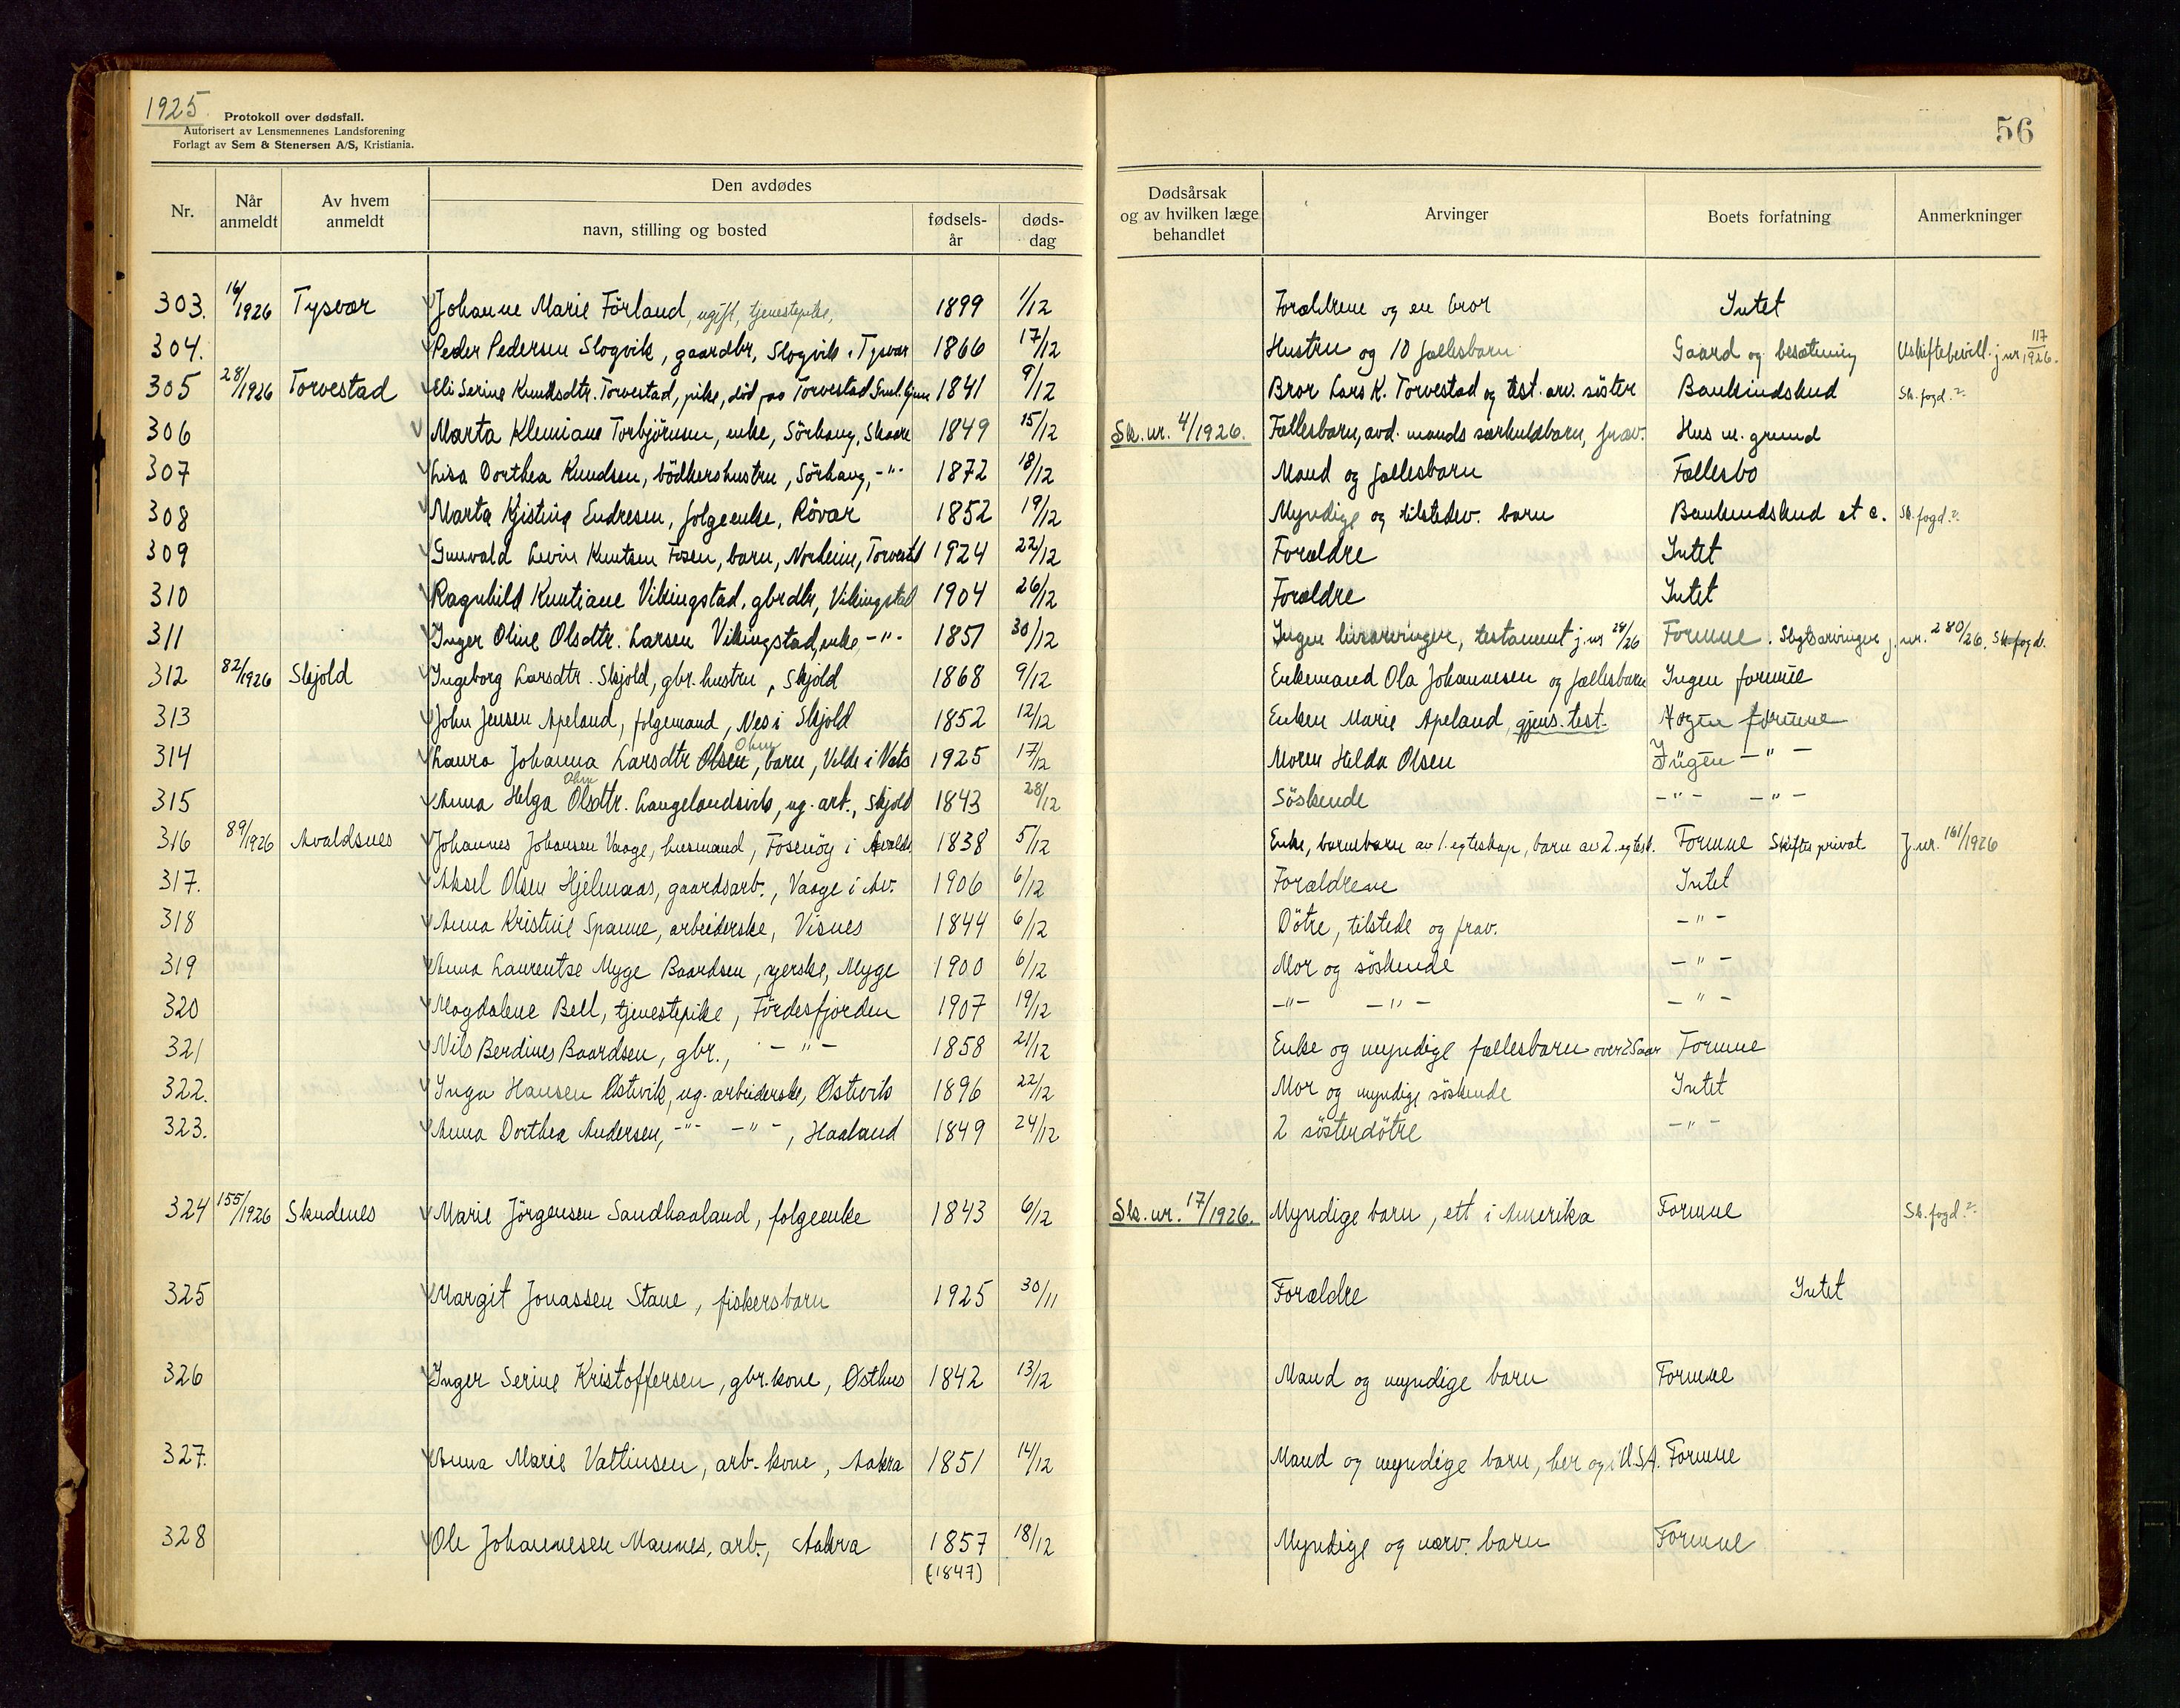 1925
Protokoll over dødsfall.
Autorisert av Lensmennenes Landsforening
Forlagt av Sem & Stenersen A/S, Kristiania.
56
Nr. Når anmeldt Av hvem anmeldt Den avdødes navn, stilling og bosted fødselsår dødsdag Dødsårsak og av hvilken læge behandlet Arvinger Boets forfatning Anmerkninger
303. 16/1926 Tysvær Johanne Marie Förland, ugift, tjenestepike, 1899 1/12 Forældrene og en bror Intet
304. Peder Pedersen Slogvik, gaardbr, Slogvik i Tysvær 1866 17/12 Hustru og 10 fællesbarn Gaard og besætning Uskiftebevill. j nr 117/1926.
305 28/1926 Torvestad Eli Serine Knudsdtr. Torvestad, pike, död paa Torvestad 1841 9/12 Bror Lars K. Torvestad og test. arv. söster Bankindskud Sk. fogd.?
306 Marta Klemiane Torbjörnsen, enke, Sörhaug, Skaare 1849 15/12 Sk. nr. 4/1926. Fællesbarn, avd. mands særkuldbarn, frav. Hus m. grund
307 Lisa Dorthea Knudsen, bödkershustru, Sörhaug, -"- 1872 18/12 Mand og fællesbarn Fællesbo
308 Marta Kjistina Endresen, folgeenke, Rövær 1852 19/12 Myndige og tilstedev. barn Bankindskud et c. Sk. fogd.?
309 Gunvald Levin Knutsen Fosen, barn, Norheim, Torvestd 1924 22/12 Forældre Intet
310 Ragnhild Knutiane Vikingstad, gbrdtr, Vikingstad 1904 26/12 Forældre Intet
311 Inger Oline Olsdtr. Larsen Vikingstad, enke -"- 1851 30/12 Ingen livsarvinger, testament j. nr 29/26 Formue. Slegtsarvinger j. nr. 280/26. Sk. fogd.
312 82/1926 Skjold Ingeborg Larsdtr. Skjold, gbr. hustru, Skjold 1868 9/12 Enkemand Ola Johannesen og fællesbarn Ingen formue
313 John Jensen Apeland, folgemand, Nes i Skjold 1852 12/12 Enken Marie Apeland, gjens. test. Nogen formue
314 Laura Johanna Larsdtr Olsen, barn, Velde i Vats 1925 17/12 Moren Helda Olsen Ingen -"-
315 Anna Helga Olsdtr. Langelandsvik, ug. arb., Skjold 1843 28/12 Söskende -"- -"-
316 89/1926 Avaldsnes Johannes Johansen Vaage, husmand, Fosenöy i Avalds 1838 5/12 Enke, barnebarn av 1. egteskap, barn av 2. egtesk. Formue Skiftes privat J. nr. 161/1926
317. Aksel Olsen Hjelmaas, gaardsarb., Vaage i Av. 1906 6/12 Forældrene Intet
318 Anna Kristine Spanne, arbeiderske, Visnes 1844 6/12 Dötre, tilstede og frav. -"-
319 Anna Laurentse Myge Baardsen, syerske, Myge 1900 6/12 Mor og söskende -"-
320 Magdalene Bell, tjenestepike, Fördesfjorden 1907 19/12 -"- -"- -"-
321 Nils Berdines Baardsen, gbr., -"- 1858 21/12 Enke og myndige fællesbarn over 25 aar Formue
322. Inga Hansen Østevik, ug. arbeiderske, Østevik 1896 22/12 Mor og myndige söskende Intet
323. Anna Dorthea Andersen, -"- -"-, Haaland 1849 24/12 2 sösterdötre -"-
324 155/1926 Skudenes Marie Jörgensen Sandhaaland, folgeenke 1843 6/12 Sk. nr. 17/1926. Myndige barn, ett i Amerika Formue Sk. fogd.?
325 Margit Jonassen Stane, fiskersbarn 1925 30/11 Forældre Intet
326 Inger Serine Kristoffersen, gbr. kone, Østhus 1842 13/12 Mand og myndige barn Formue
327. Anna Marie Vallinsen, arb. kone, Aakra 1851 14/12 Mand og myndige barn, her og i U.S.A. Formue
328 Ole Johannesen Mannes, arb., Aakra 1857 18/12 Myndige og nærv. barn Formue
(1847)